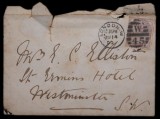 LONDON
W
Mr B. C. Elliston
St Ermins Hotel
Westminster
S.W